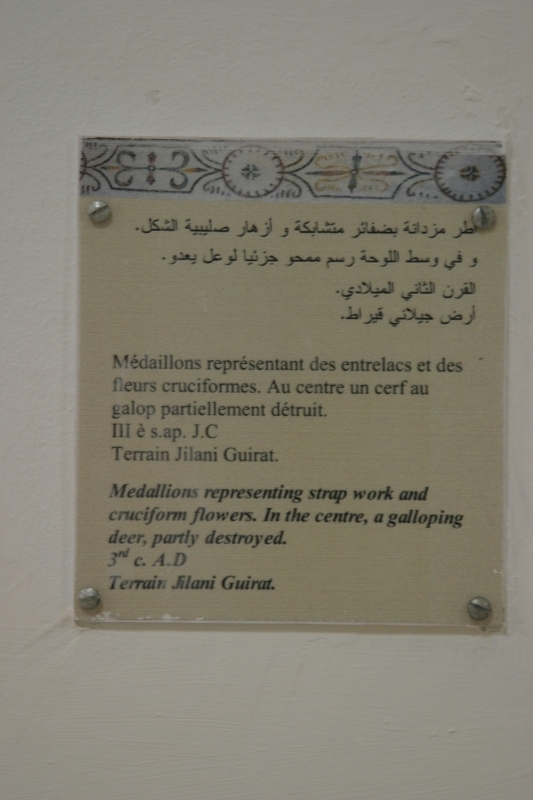 أطر مزدانة بضفائر متشابكة و أزهار صليبية الشكل.
و في وسط اللوحة رسم ممحو جزئيا لوعل يعدو.
القرن الثاني الميلادي.
أرض جيلاني قيراط.
Médaillons représentant des entrelacs et des
fleurs cruciformes. Au centre un cerf au
galop partiellement détruit.
III è s.ap. J.C
Terrain Jilani Guirat.
Medallions representing strap work and
cruciform flowers. In the centre, a galloping
deer, partly destroyed.
3rd c. A.D
Terrain Jilani Guirat.